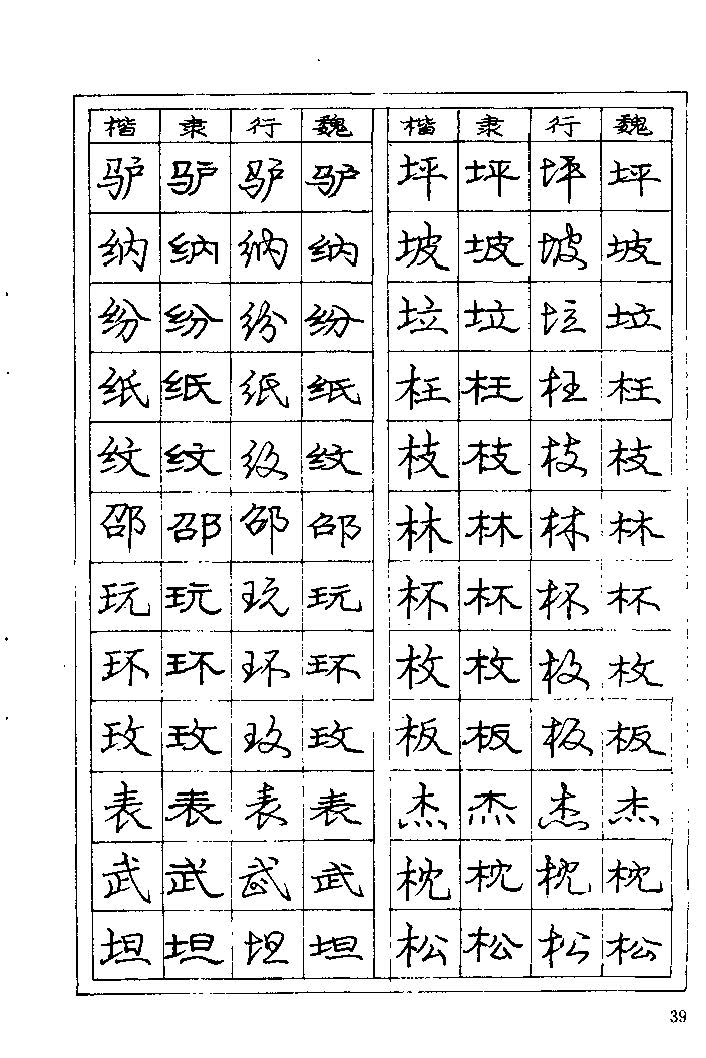 楷 隶 行 魏 楷 隶 行 魏
驴 驴 驴 驴 坪 坪 坪 坪
纳 纳 纳 纳 坡 坡 坡 坡
纷 纷 纷 纷 垃 垃 垃 垃
纸 纸 纸 纸 枉 枉 枉 枉
纹 纹 纹 纹 枝 枝 枝 枝
邵 邵 邵 邵 林 林 林 林
玩 玩 玩 玩 杯 杯 杯 杯
环 环 环 环 枚 枚 枚 枚
玫 玫 玫 玫 板 板 板 板
表 表 表 表 杰 杰 杰 杰
武 武 武 武 枕 枕 枕 枕
坦 坦 坦 坦 松 松 松 松
39